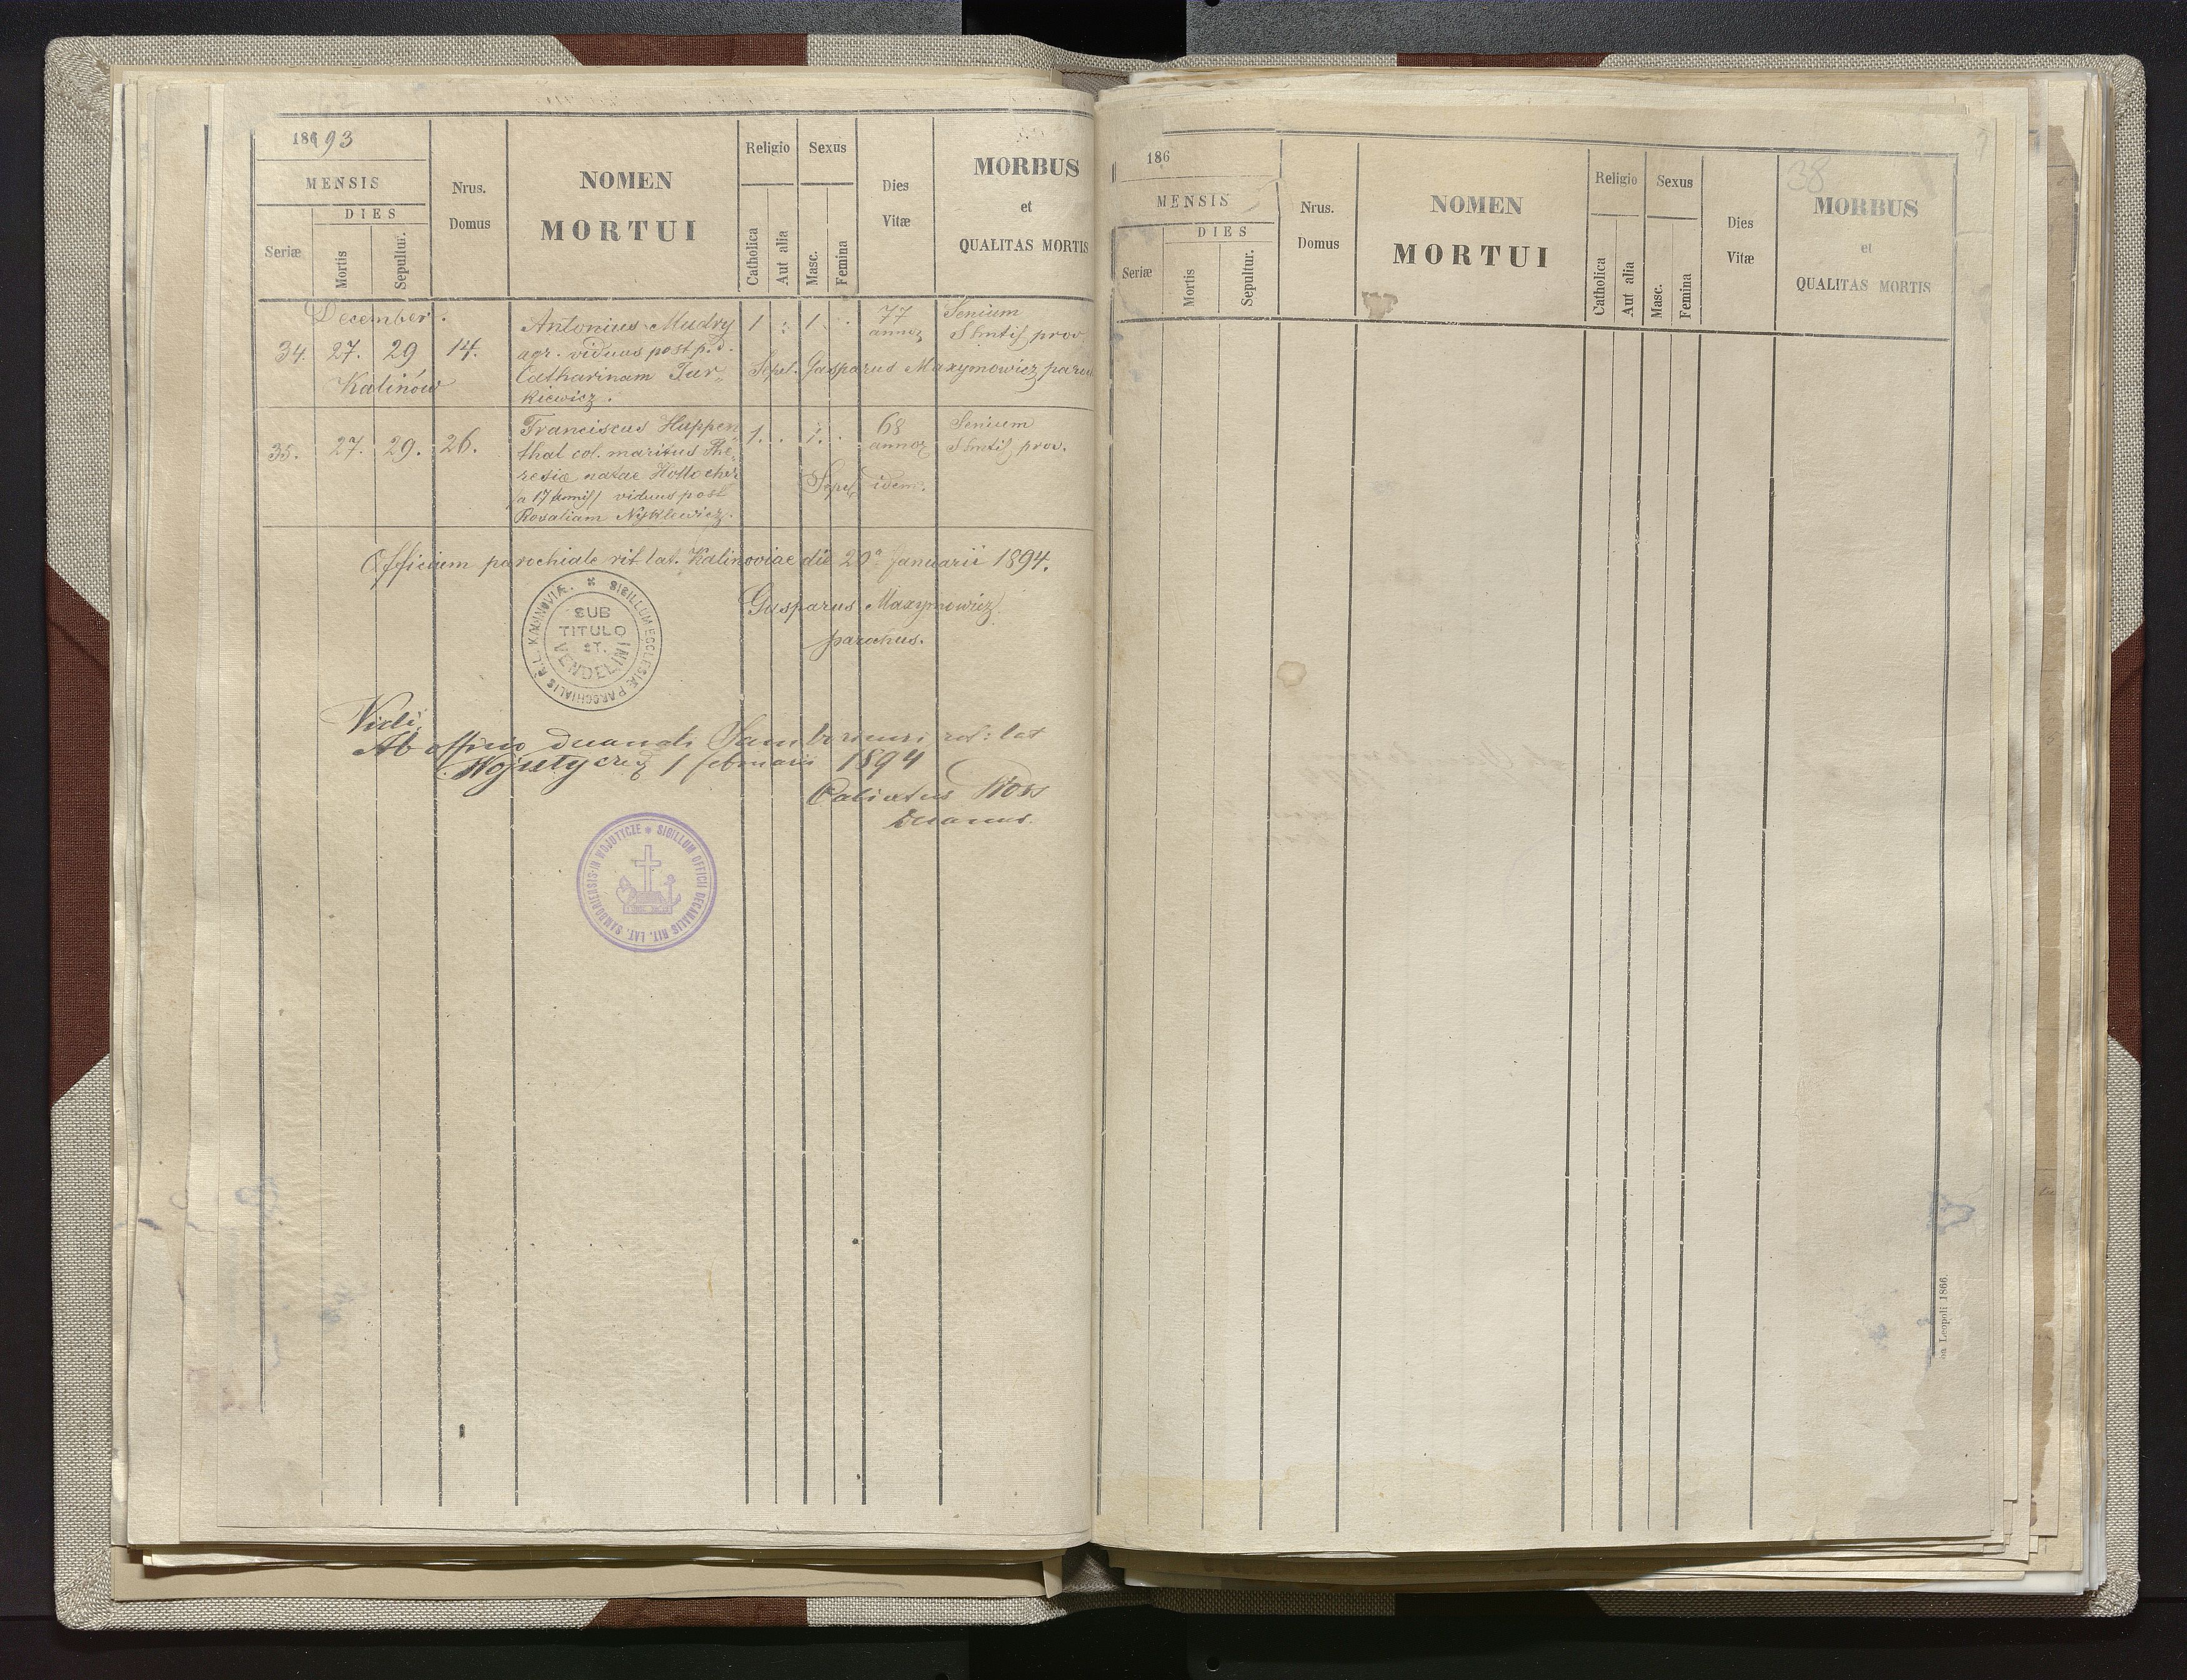 1893
MENSIS
DIES
Seriæ
Mortis
Sepultur.
Nrus.
Domus
NOMEN
MORTUI
Religio
Catholica
Aut alia
Sexus
Masc.
Femina
Dies
Vitæ
MORBUS
et
QUALITAS MORTIS
December.
34. 27. 29 14.
Kalinów
Antonius Mudry
agr. viduus post p. d.
Catharinam Jur-
kiewicz.
1 . 1 .
77
annor
Senium
prov
Sepel. Gasparus Maxymowicz paroch
35. 27. 29. 26.
Franciscus Huppen
thal col. maritus The-
resiæ natae
viduus post
Rosaliam Nyklewicz.
1. . 1. .
68
annor
Senium
prov.
Sepel. idem.
Officium parochiale rit lat. Kalinoviae die 20a Januarii 1894.
Gasparus Maxymowicz
parochus.
SIGILLUM ECCLESIÆ PAROCHIALIS R. L. KALINOVIÆ.
SUB
TITULO
ST.
VENDELINI
Vidi
Ab officio decanali Samboriensi rit: lat
Wojutycze 1 februarii 1894
Calixtus
Decanus.
SIGILLUM OFFICII DECANALIS RIT. LAT. SAMBORIENSIS IN WOJUTYCZE
186
MENSIS
DIES
Seriæ
Mortis
Sepultur.
Nrus.
Domus
NOMEN
MORTUI
Religio
Catholica
Aut alia
Sexus
Masc.
Femina
Dies
Vitæ
38
MORBUS
et
QUALITAS MORTIS
Leopoli 1866.